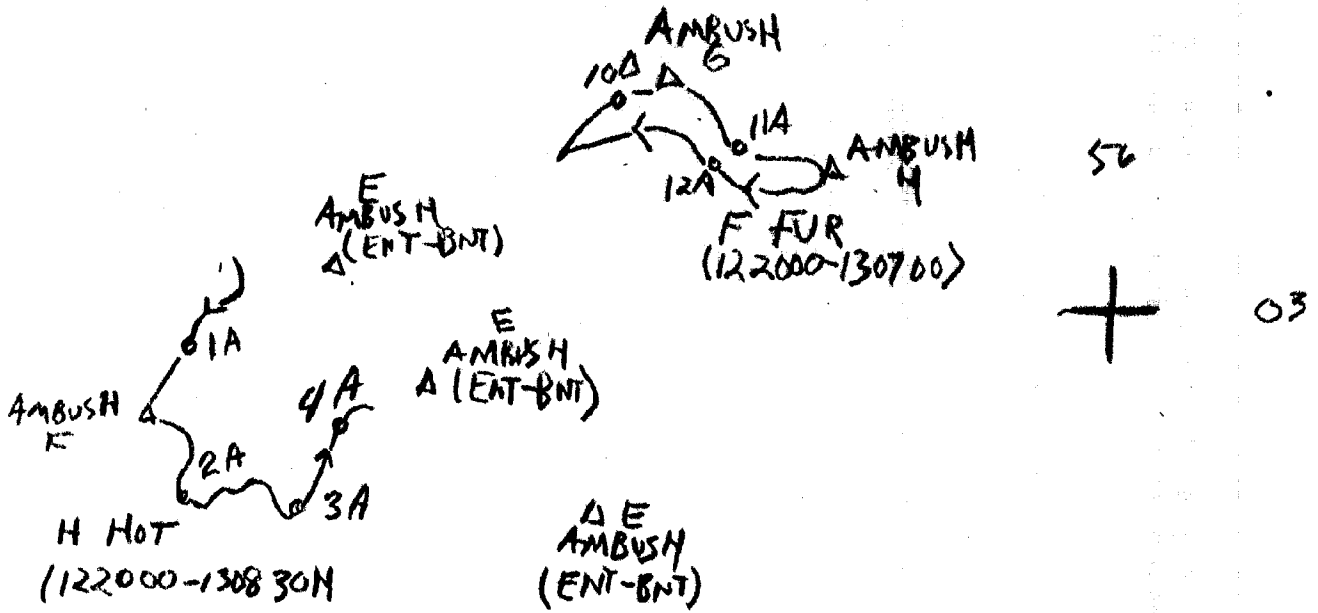 AMBUSH
G
10A
11A
AMBUSH
H
12A
F FUR
(122000-130700)
56
03
E
AMBUSH
(ENT-BNT)
1A
E
AMBUSH
(ENT-BNT)
AMBUSH
F
4A
2A
3A
H HOT
(122000-130830H
E
AMBUSH
(ENT-BNT)